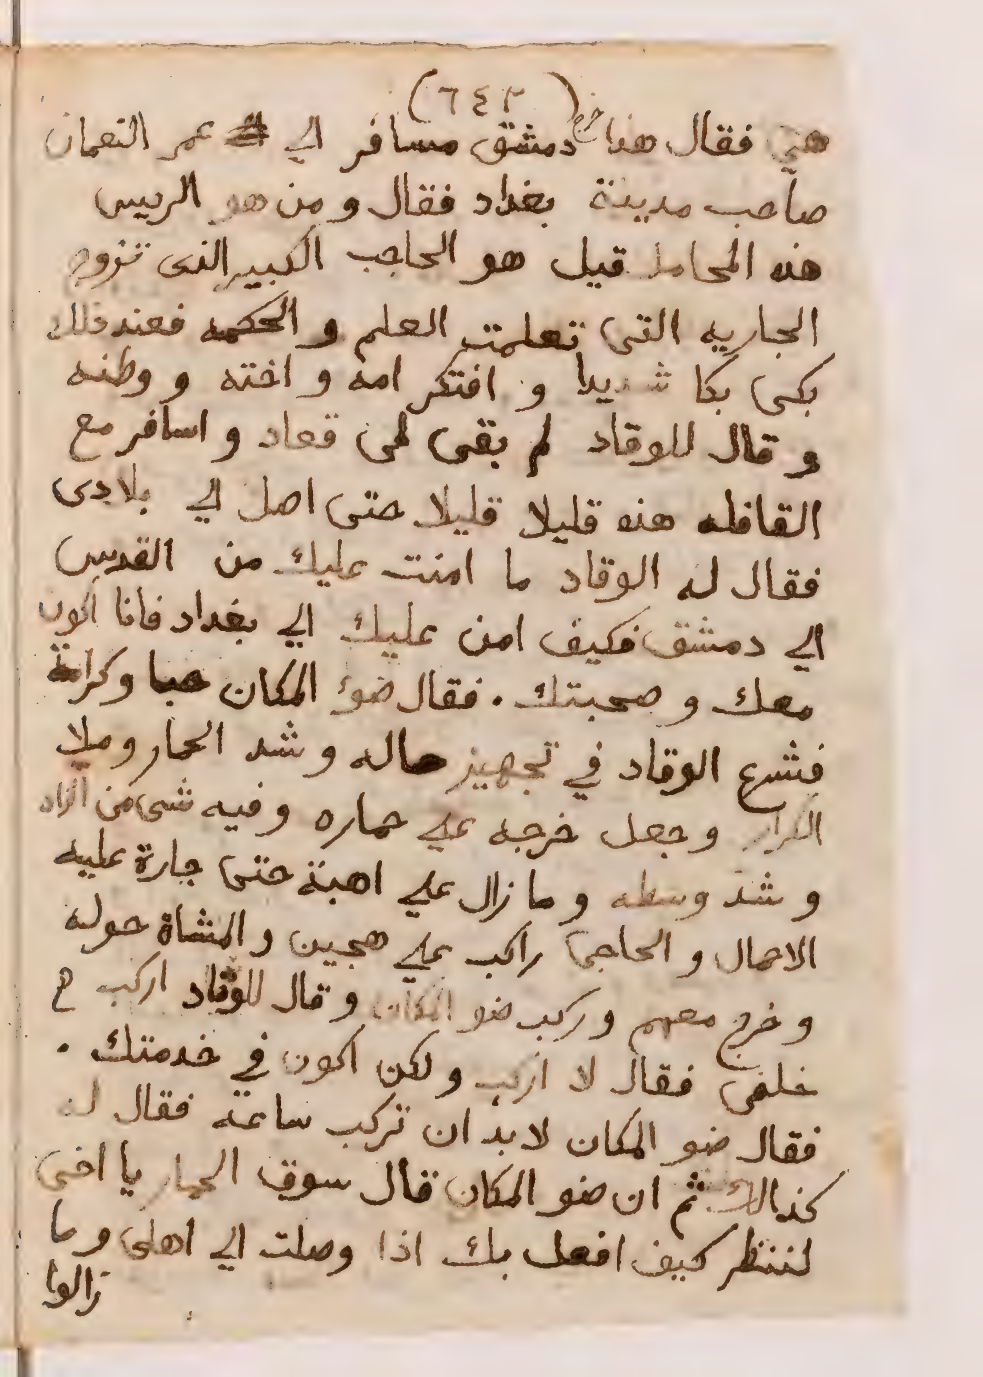 (٦٤٢)
هي فقال هذا خرج دمشق مسافر الي عمر النعمان
صاحب مدينة بغداد فقال و من هو الريس
هذه المحامل قيل هو الحاجب الكبير الذى تزوج
الجاريه التى تعلمت العلم و الحكمه فعند ذلك
بكى بكا شديدا و افتكر امه و اخته و وطنه
و قال للوقاد لم بقى لى قعاد و اسافر مع
القافله هذه قليلا قليلا حتى اصل الي بلادى
فقال له الوقاد ما امنت عليك من القدس
الي دمشق فكيف امن عليك الي بغداد فانا اكون
معك و صحبتك . فقال ضوء المكان حبا وكرامة
فشرع الوقاد في تجهيز حاله و شد الحمار وملا
الكرار وجعل خرجه علي حماره وفيه شى من الزاد
و شد وسطه و ما زال علي اهبة حتى جازة عليه
الاحمال و الحاجى راكب علي هجين و المشاة حوله
و خرج معهم و ركب ضو المكان و قال للوقاد اركب
خلفى فقال لا اركب ولكن اكون في خدمتك .
فقال ضو المكان لابد ان تركب ساعة فقال له
كذالك ثم ان ضو المكان قال سوق الحمار يا اخى
لننظر كيف افعل بك اذا وصلت الي اهلى وما
زالوا